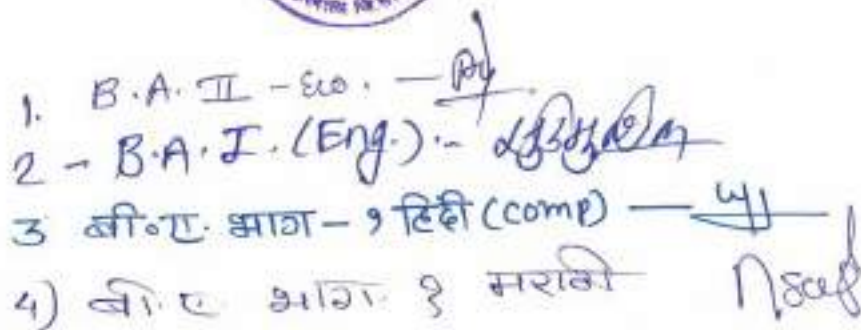 1. B.A. II - Eco. -
2 - B.A. I. (Eng.) -
3 बी.ए. भाग - १ हिंदी (comp) -
4) बी. ए भाग १ मराठी